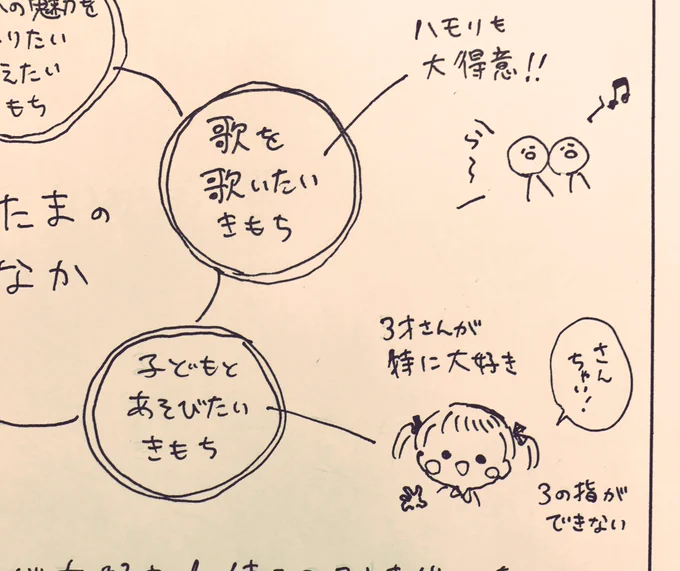 の魅力を
りたい
えたい
もち
ハモりも
大得意!!
歌を
歌いたい
きもち
ら〜
たまの
なか
3才さんが
特に大好き
さん
ちゃい!
子どもと
あそびたい
きもち
3の指が
できない